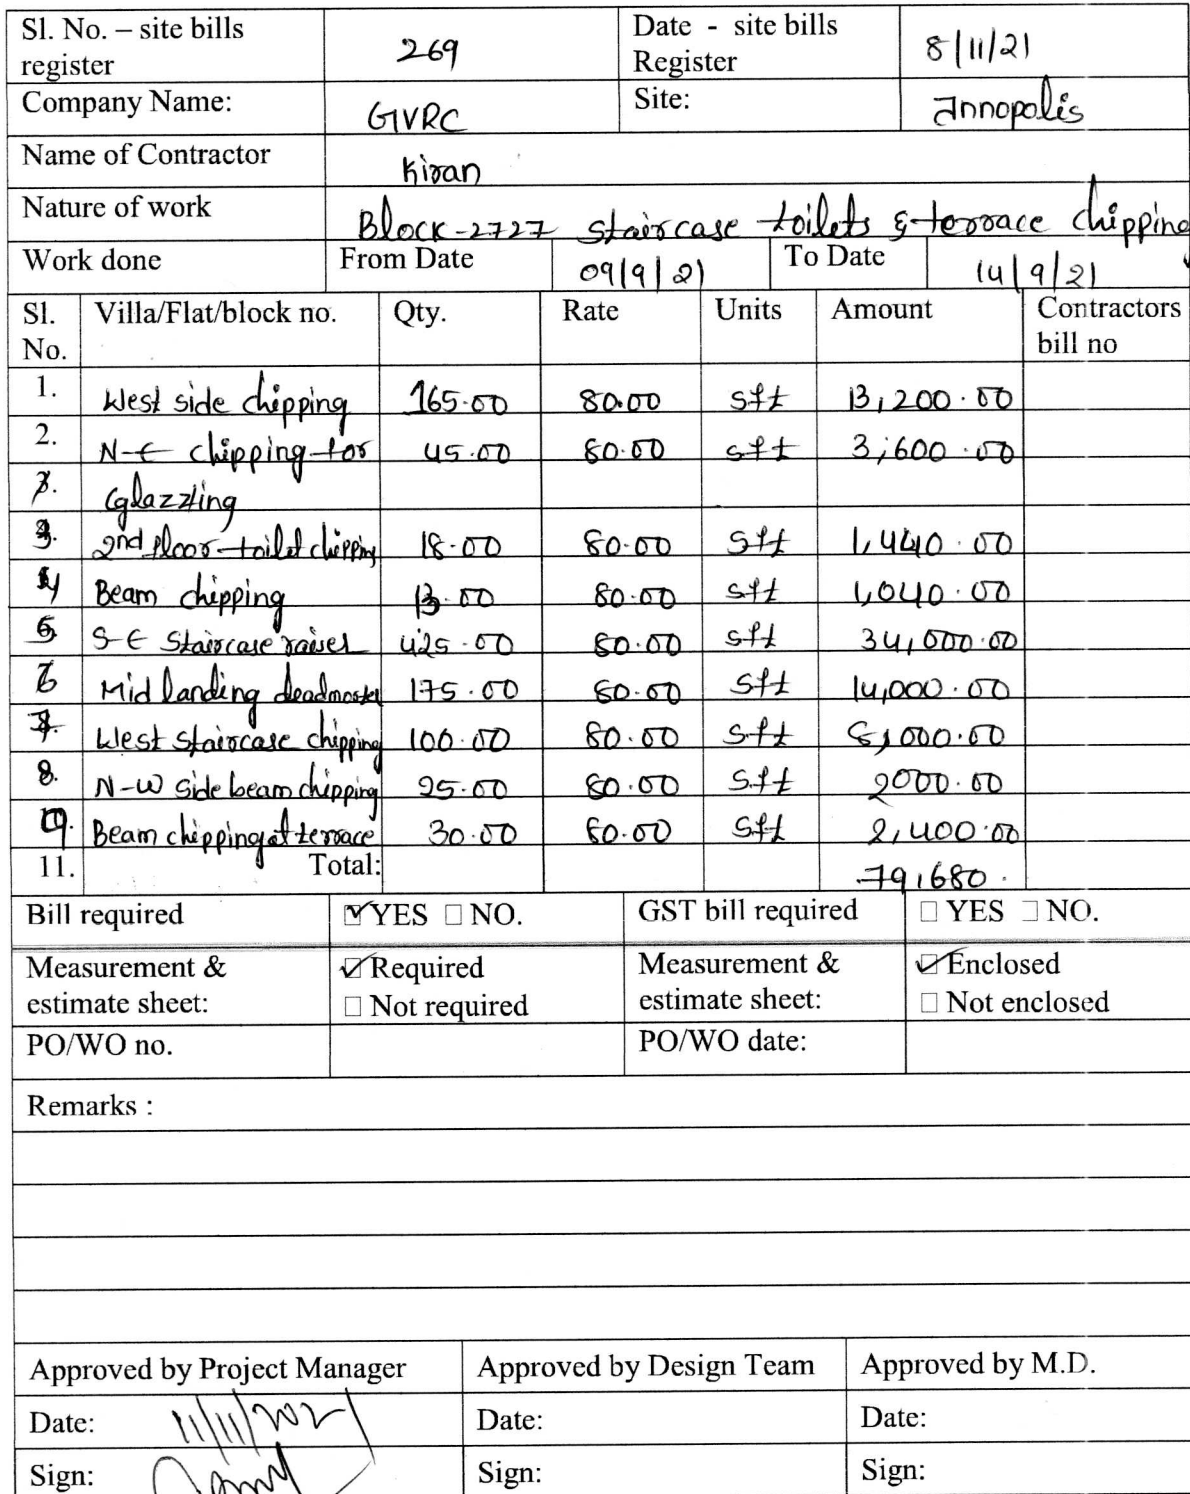 Sl. No. – site bills register 269 Date - site bills Register 8/11/21
Company Name: GVRC Site: Innopolis
Name of Contractor Kiran
Nature of work Block-2727 staircase toilets & terrace chipping
Work done From Date 09/9/21 To Date 14/9/21
Sl. No. Villa/Flat/block no. Qty. Rate Units Amount Contractors bill no
1. West side chipping 165.00 80.00 sft 13,200.00
2. N-E chipping for 45.00 80.00 sft 3,600.00
3. Glazzling
3. 2nd floor toilet chipping 18.00 80.00 sft 1,440.00
4 Beam chipping 13.00 80.00 sft 1,040.00
5 S-E Staircase raiser 425.00 80.00 sft 34,000.00
6 Mid landing 175.00 80.00 sft 14,000.00
7. West staircase chipping 100.00 80.00 sft 8,000.00
8. N-W side beam chipping 25.00 80.00 sft 2000.00
9. Beam chipping at terrace 30.00 80.00 sft 2,400.00
11. Total: 79,680.
Bill required ☑YES □ NO. GST bill required □ YES □ NO.
Measurement & estimate sheet: ☑Required □ Not required Measurement & estimate sheet: ☑Enclosed □ Not enclosed
PO/WO no. PO/WO date:
Remarks :
Approved by Project Manager Approved by Design Team Approved by M.D.
Date: 11/11/2021 Date: Date:
Sign: Sign: Sign: